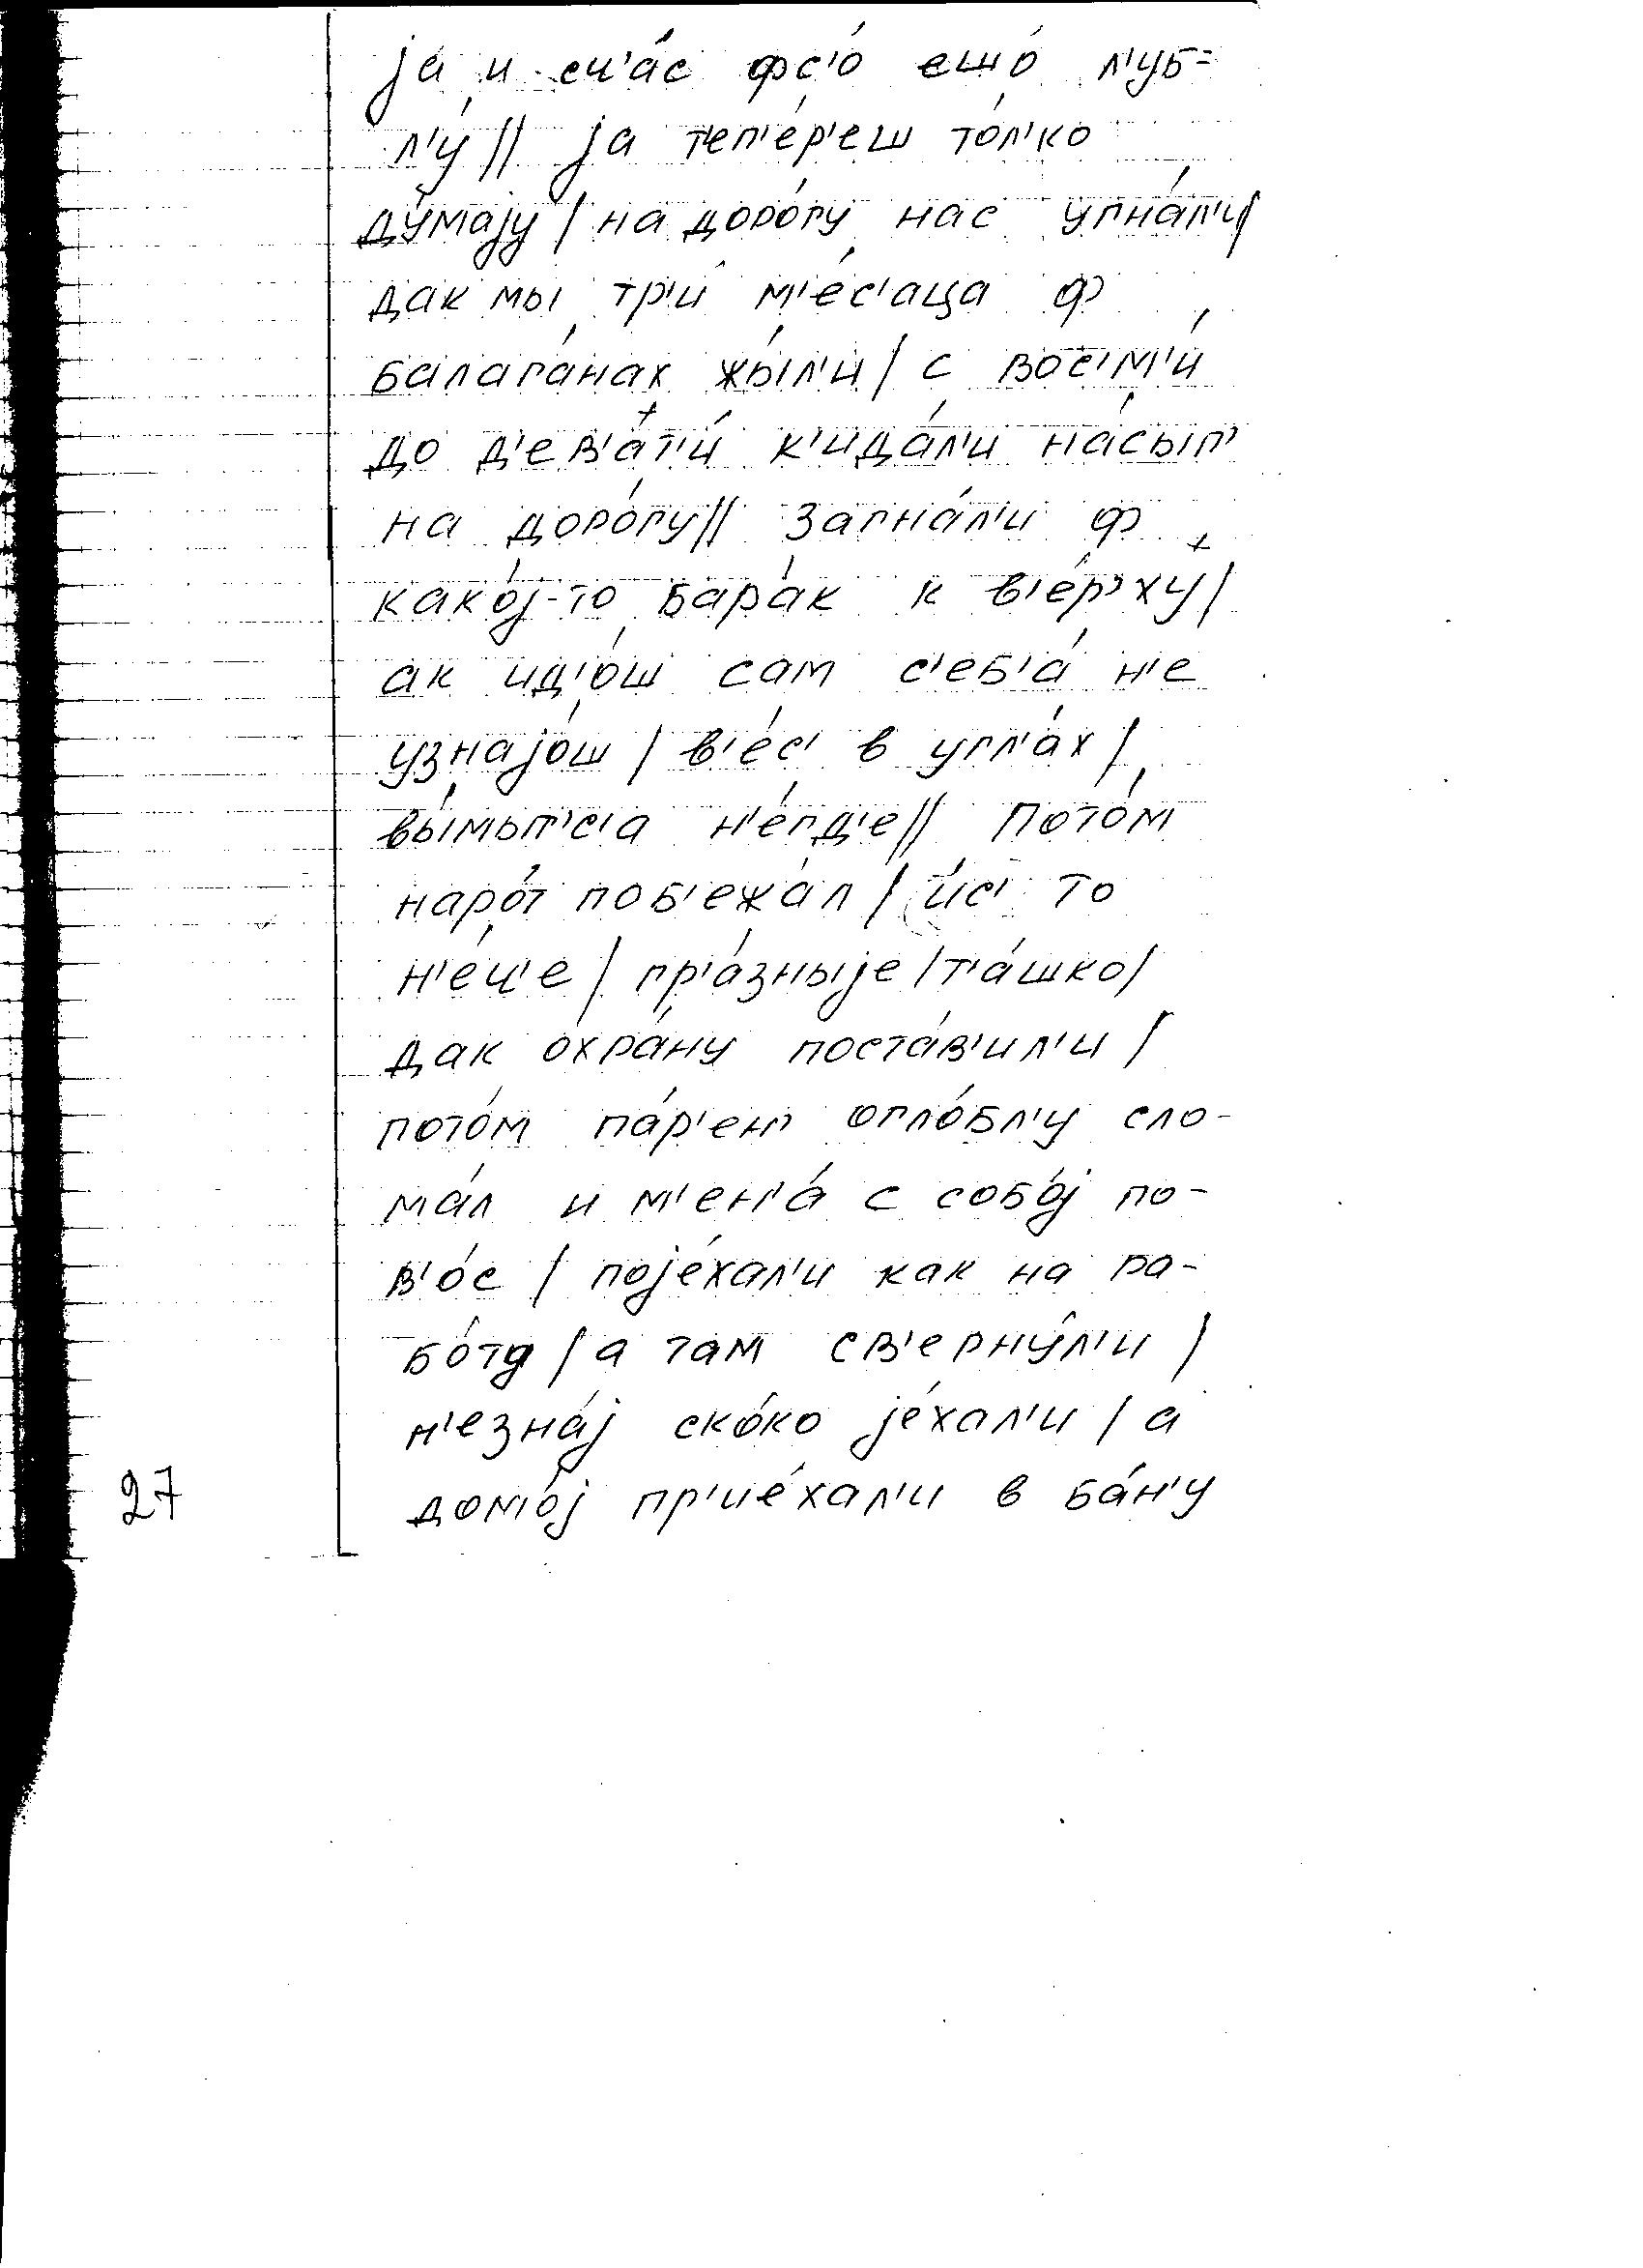 ја́ и сч'а́с фс'о́ ешо́ л'уб=
л'у́ // ја теп'е́р'еш то́л'ко
ду́мају / на доро́гу нас угна́л'и /
дак мы тр'и м'е́с'аца ф
балага́нах жы́л'и / с вос'м'и́
до д'ев'ат'и́ к'ида́л'и на́сып'
на доро́гу // загна́л'и ф
како́ј-то бара́к к в'е́р'ху /
ак ид'о́ш сам с'еб'а́ н'е
узнајо́ш / в'е́с' в угл'а́х /
вы́мыт'с'а н'е́гд'е // пото́м
наро́т поб'ежа́л / и́с' то
н'е́ч'е / гр'а́зныје / т'а́шко /
дак охра́ну поста́в'ил'и /
пото́м па́р'ен' огло́бл'у сло-
ма́л и м'ен'а́ с собо́ј по-
в'о́с / поје́хал'и как на ра-
бо́ту / а там св'ерну́л'и /
н'езна́ј ско́ко је́хал'и / а
27 домо́ј пр'ие́хал'и в ба́н'у